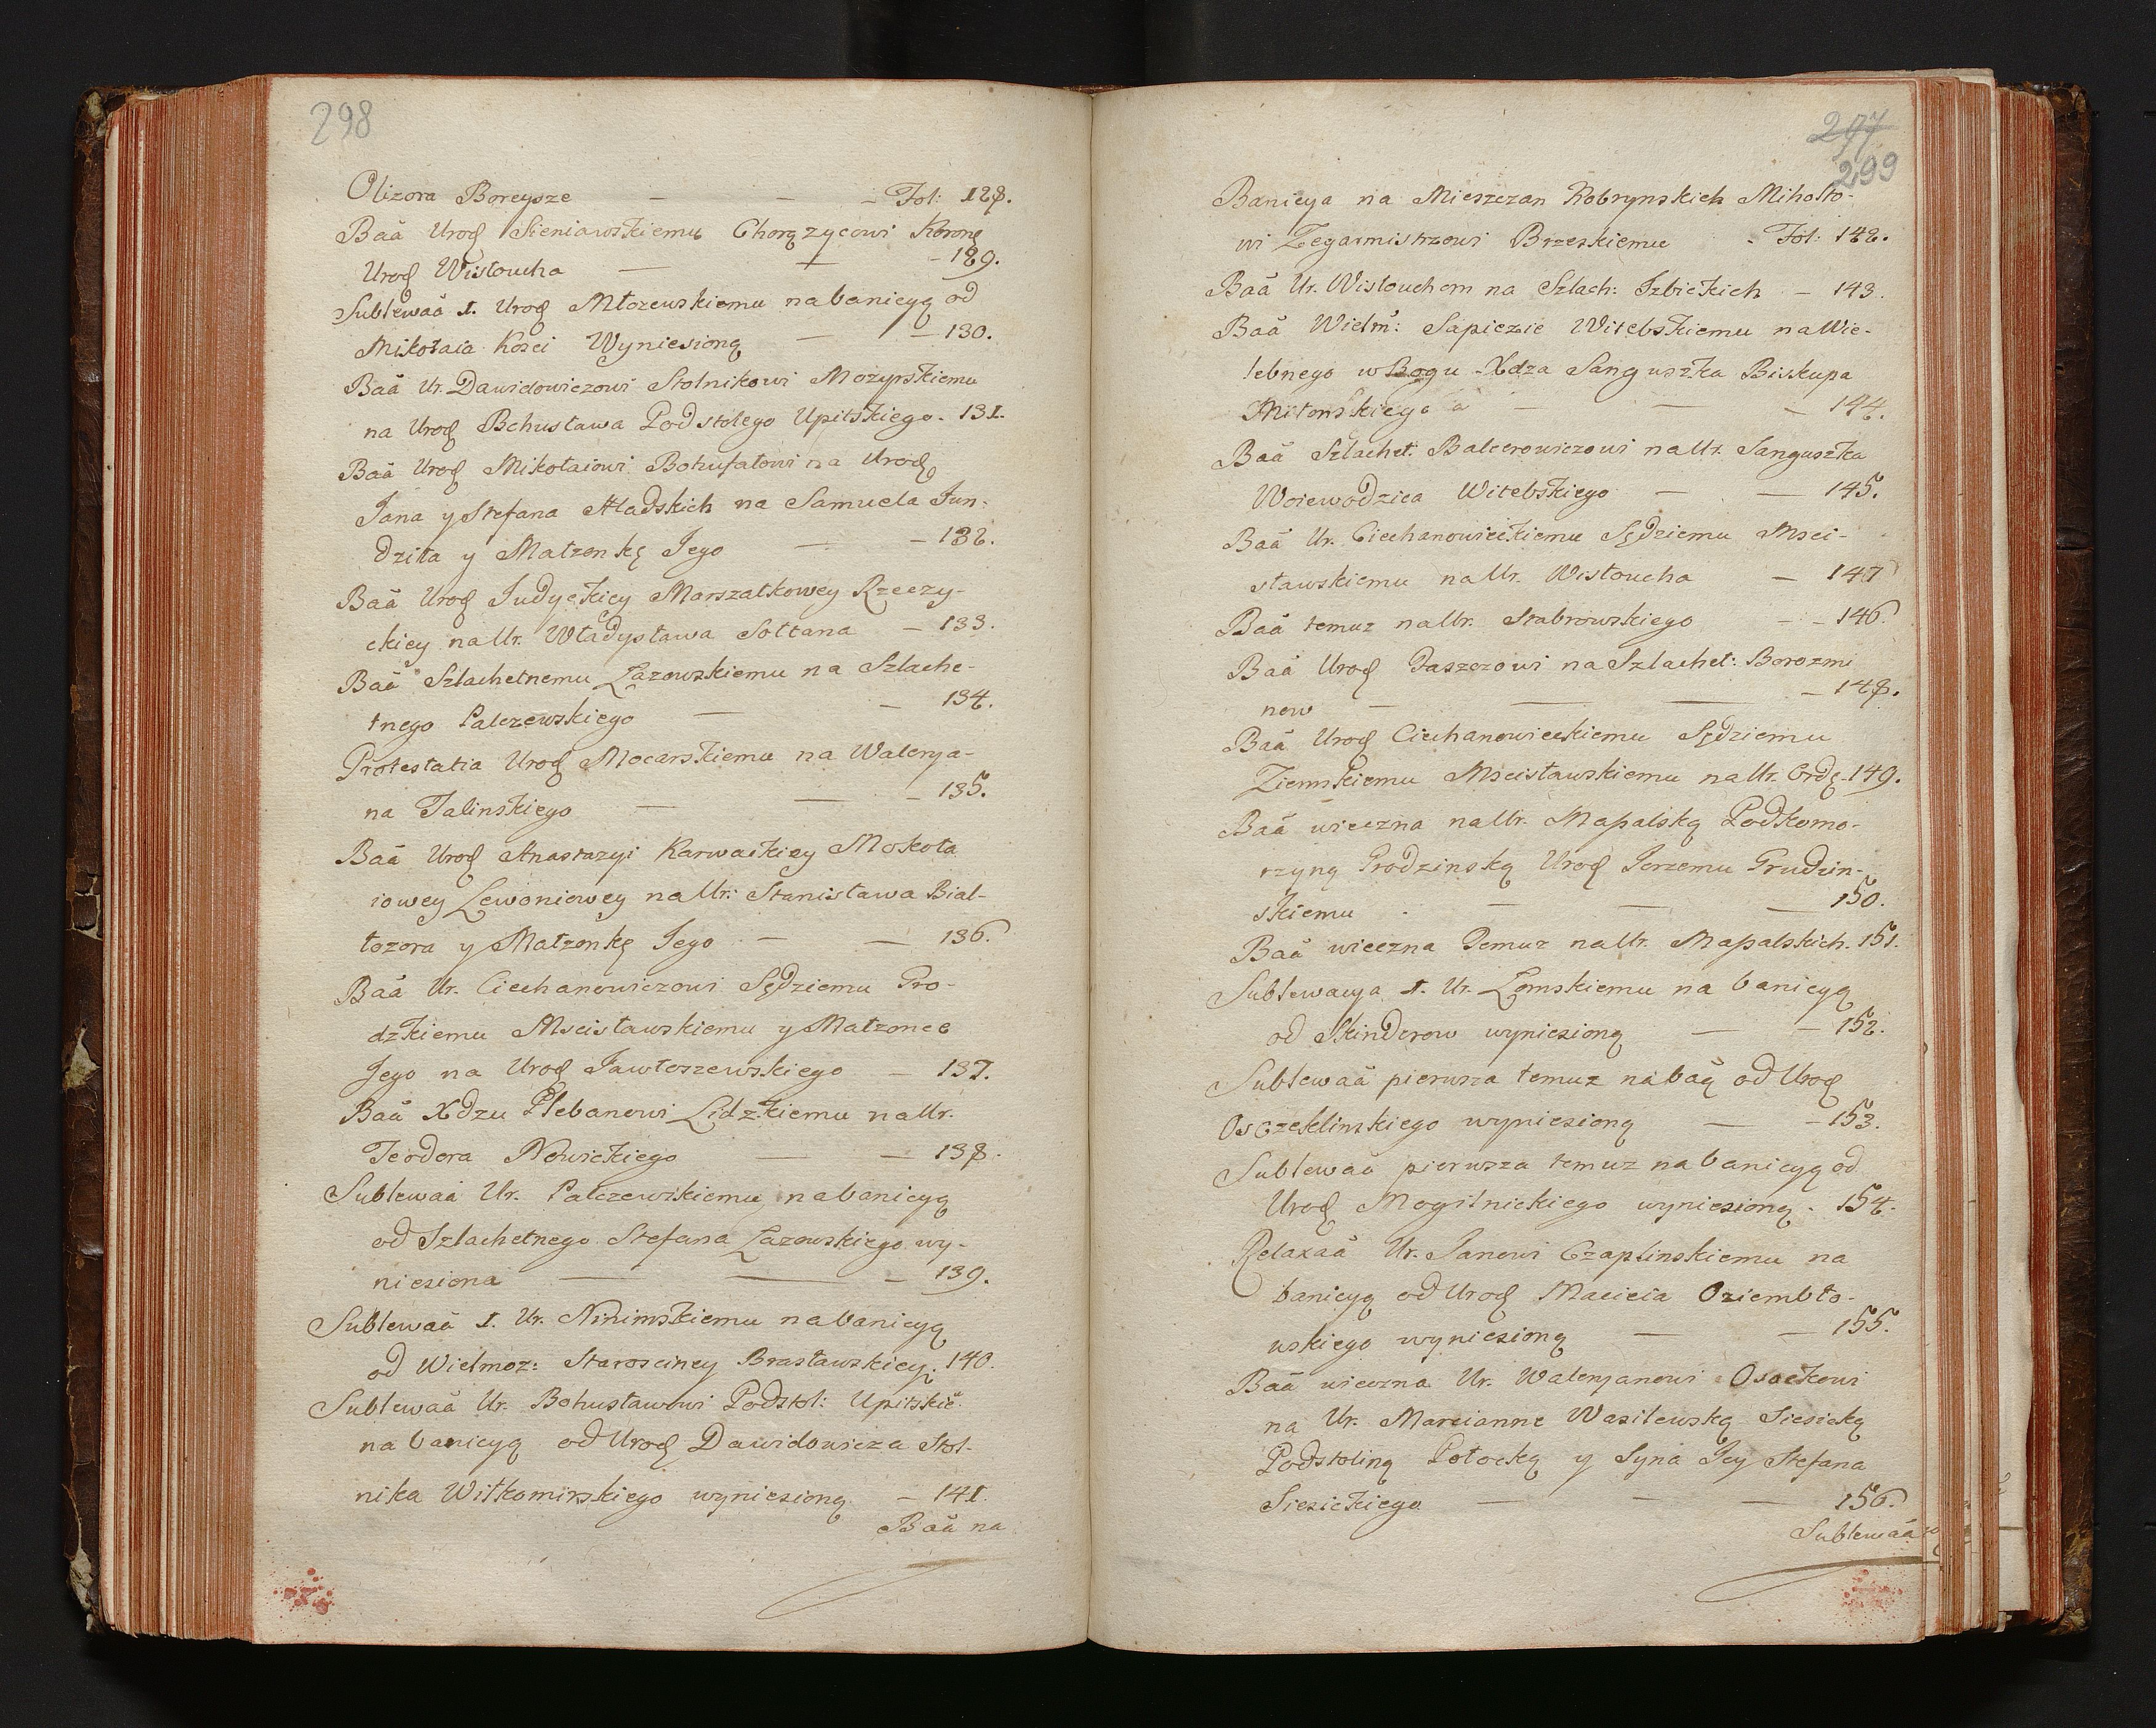 298
Olizora Boreysze — — — Fol: 128.
Baã Urod Sieniawskiemu Chorązycowi Koron
Urod Wistoucha — — — 129.
Sublewaã I. Urod Młozewskiemu na banicyą od
Mikołaia Kosci Wyniesioną — — 130.
Baã Ur. Dawidowiczowi Stolnikowi Mozyrskiemu
na Urod Bohusława Podstolego Upitskiego - 131.
Baã Urod Mikołaiowi Bohufałowi na Urod
Jana y Stefana Hladskich na Samuela Jun-
dziła y Małzonkę Jego — — 132.
Baã Urod Judyckiey Marszałkowey Rzeczy-
ckiey na Ur. Władysława Sołtana — 133.
Baã Szlachetnemu Łazowskiemu na Szlache-
tnego Palczewskiego — — 134.
Protestatia Urod Mocarskiemu na Walerya-
na Jalinskiego — — — 135.
Baã Urod Anastazyi Karwackiey Mokoła
iowey Lewoniowey na Ur: Stanisława Biał-
łozora y Małzonkę Jego — — 136.
Baã Ur. Ciechanowiczowi Sędziemu Gro-
dzkiemu Mscisławskiemu y Małzonce
Jego na Urod Jawłoszewskiego — 137.
Baã Xdzu Plebanowi Lidzkiemu na Ur.
Teodora Nowickiego — — 138.
Sublewaã Ur. Palczewskiemu na banicyą
od Szlachetnego Stefana Łazowskiego wy-
niesiona — — — 139.
Sublewaã I. Ur. Ninimskiemu na banicyą
od Wielmoz: Starosciney Brasławskiey. 140.
Sublewaã Ur. Bohusławowi Podstol: Upitskie
na banicyą od Urod Dawidowicza Stol-
nika Wiłkomirskiego wyniesioną — 141.
Baã na
297
299
Banicya na Mieszczan Kobrynskich Mihołto-
wi Zegarmistrzowi Brzeskiemu - Fol: 142.
Baã Ur. Wisłouchom na Szlach: Izbickich — 143.
Baã Wielm: Sapiezie Witebskiemu na Wie-
lebnego w Bogu Xdza Sanguszka Biskupa
Mitonskiego — — — 144.
Baã Szlachet: Balcerowiczowi na Ur. Sanguszka
Woiewodzica Witebskiego — — 145.
Baã Ur. Ciechanowieckiemu Sędziemu Msci-
sławskiemu na Ur. Wisłoucha — 147
Baã temuz na Ur. Stabrowskiego — — 146.
Baã Urod Daszczowi na Szlachet: Borozmi
now — — — — 148.
Baã Urod Ciechanowieckiemu Sędziemu
Ziemskiemu Mscisławskiemu na Ur. Ordę - 149.
Baã wieczna na Ur. Mapalską Podkomo-
rzyną Grodzinską Urod Jerzemu Grudzin-
skiemu — — — 150.
Baã wieczna temuz na Ur. Mapalskich. 151.
Sublewacya I. Ur. Łomskiemu na banicyą
od Skinderow wyniesioną — — 152.
Sublewaã pierwsza temuz na baã od Urod
Osczeklinskiego wyniesioną — — 153.
Sublewaã pierwsza temuz na banicyą od
Urod Mogilnickiego wyniesioną - 154.
Relaxaã Ur. Janowi Czaplinskiemu na
banicyą od Urod Macieia Oziembło-
wskiego wyniesioną — — 155.
Baã wieczna Ur. Waleryanowi Osockowi
na Ur. Marciannę Wasilewską Siesicką
Podstoliną Połocką y Syna Jey Stefana
Siesickiego — — — 156.
Sublewaã